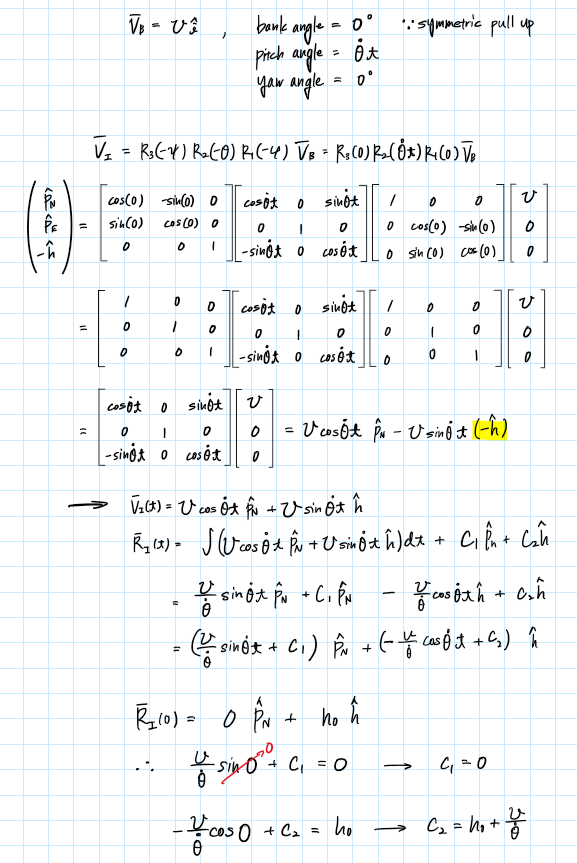 V̄_B = v î , bank angle = 0° ∵ symmetric pull up
pitch angle = θ̇t
yaw angle = 0°
V̄_I = R₃(-ψ) R₂(-θ) R₁(-φ) V̄_B = R₃(0) R₂(θ̇t) R₁(0) V̄_B
(p̂_N ; p̂_E ; -ĥ) = [cos(0) -sin(0) 0 ; sin(0) cos(0) 0 ; 0 0 1] [cosθ̇t 0 sinθ̇t ; 0 1 0 ; -sinθ̇t 0 cosθ̇t] [1 0 0 ; 0 cos(0) -sin(0) ; 0 sin(0) cos(0)] [v ; 0 ; 0]
= [1 0 0 ; 0 1 0 ; 0 0 1] [cosθ̇t 0 sinθ̇t ; 0 1 0 ; -sinθ̇t 0 cosθ̇t] [1 0 0 ; 0 1 0 ; 0 0 1] [v ; 0 ; 0]
= [cosθ̇t 0 sinθ̇t ; 0 1 0 ; -sinθ̇t 0 cosθ̇t] [v ; 0 ; 0] = v cosθ̇t p̂_N - v sinθ̇t (-ĥ)
→ V̄_I(t) = v cosθ̇t p̂_N + v sinθ̇t ĥ
R̄_I(t) = ∫(v cosθ̇t p̂_N + v sinθ̇t ĥ)dt + C₁ p̂_n + C₂ĥ
= v/θ̇ sinθ̇t p̂_N + C₁ p̂_N - v/θ̇ cosθ̇t ĥ + C₂ĥ
= (v/θ̇ sinθ̇t + C₁) p̂_N + (-v/θ̇ cosθ̇t + C₂) ĥ
R̄_I(0) = 0 p̂_N + h₀ ĥ
∴ v/θ̇ sin0 0 + C₁ = 0 → C₁ = 0
-v/θ̇ cos0 + C₂ = h₀ → C₂ = h₀ + v/θ̇